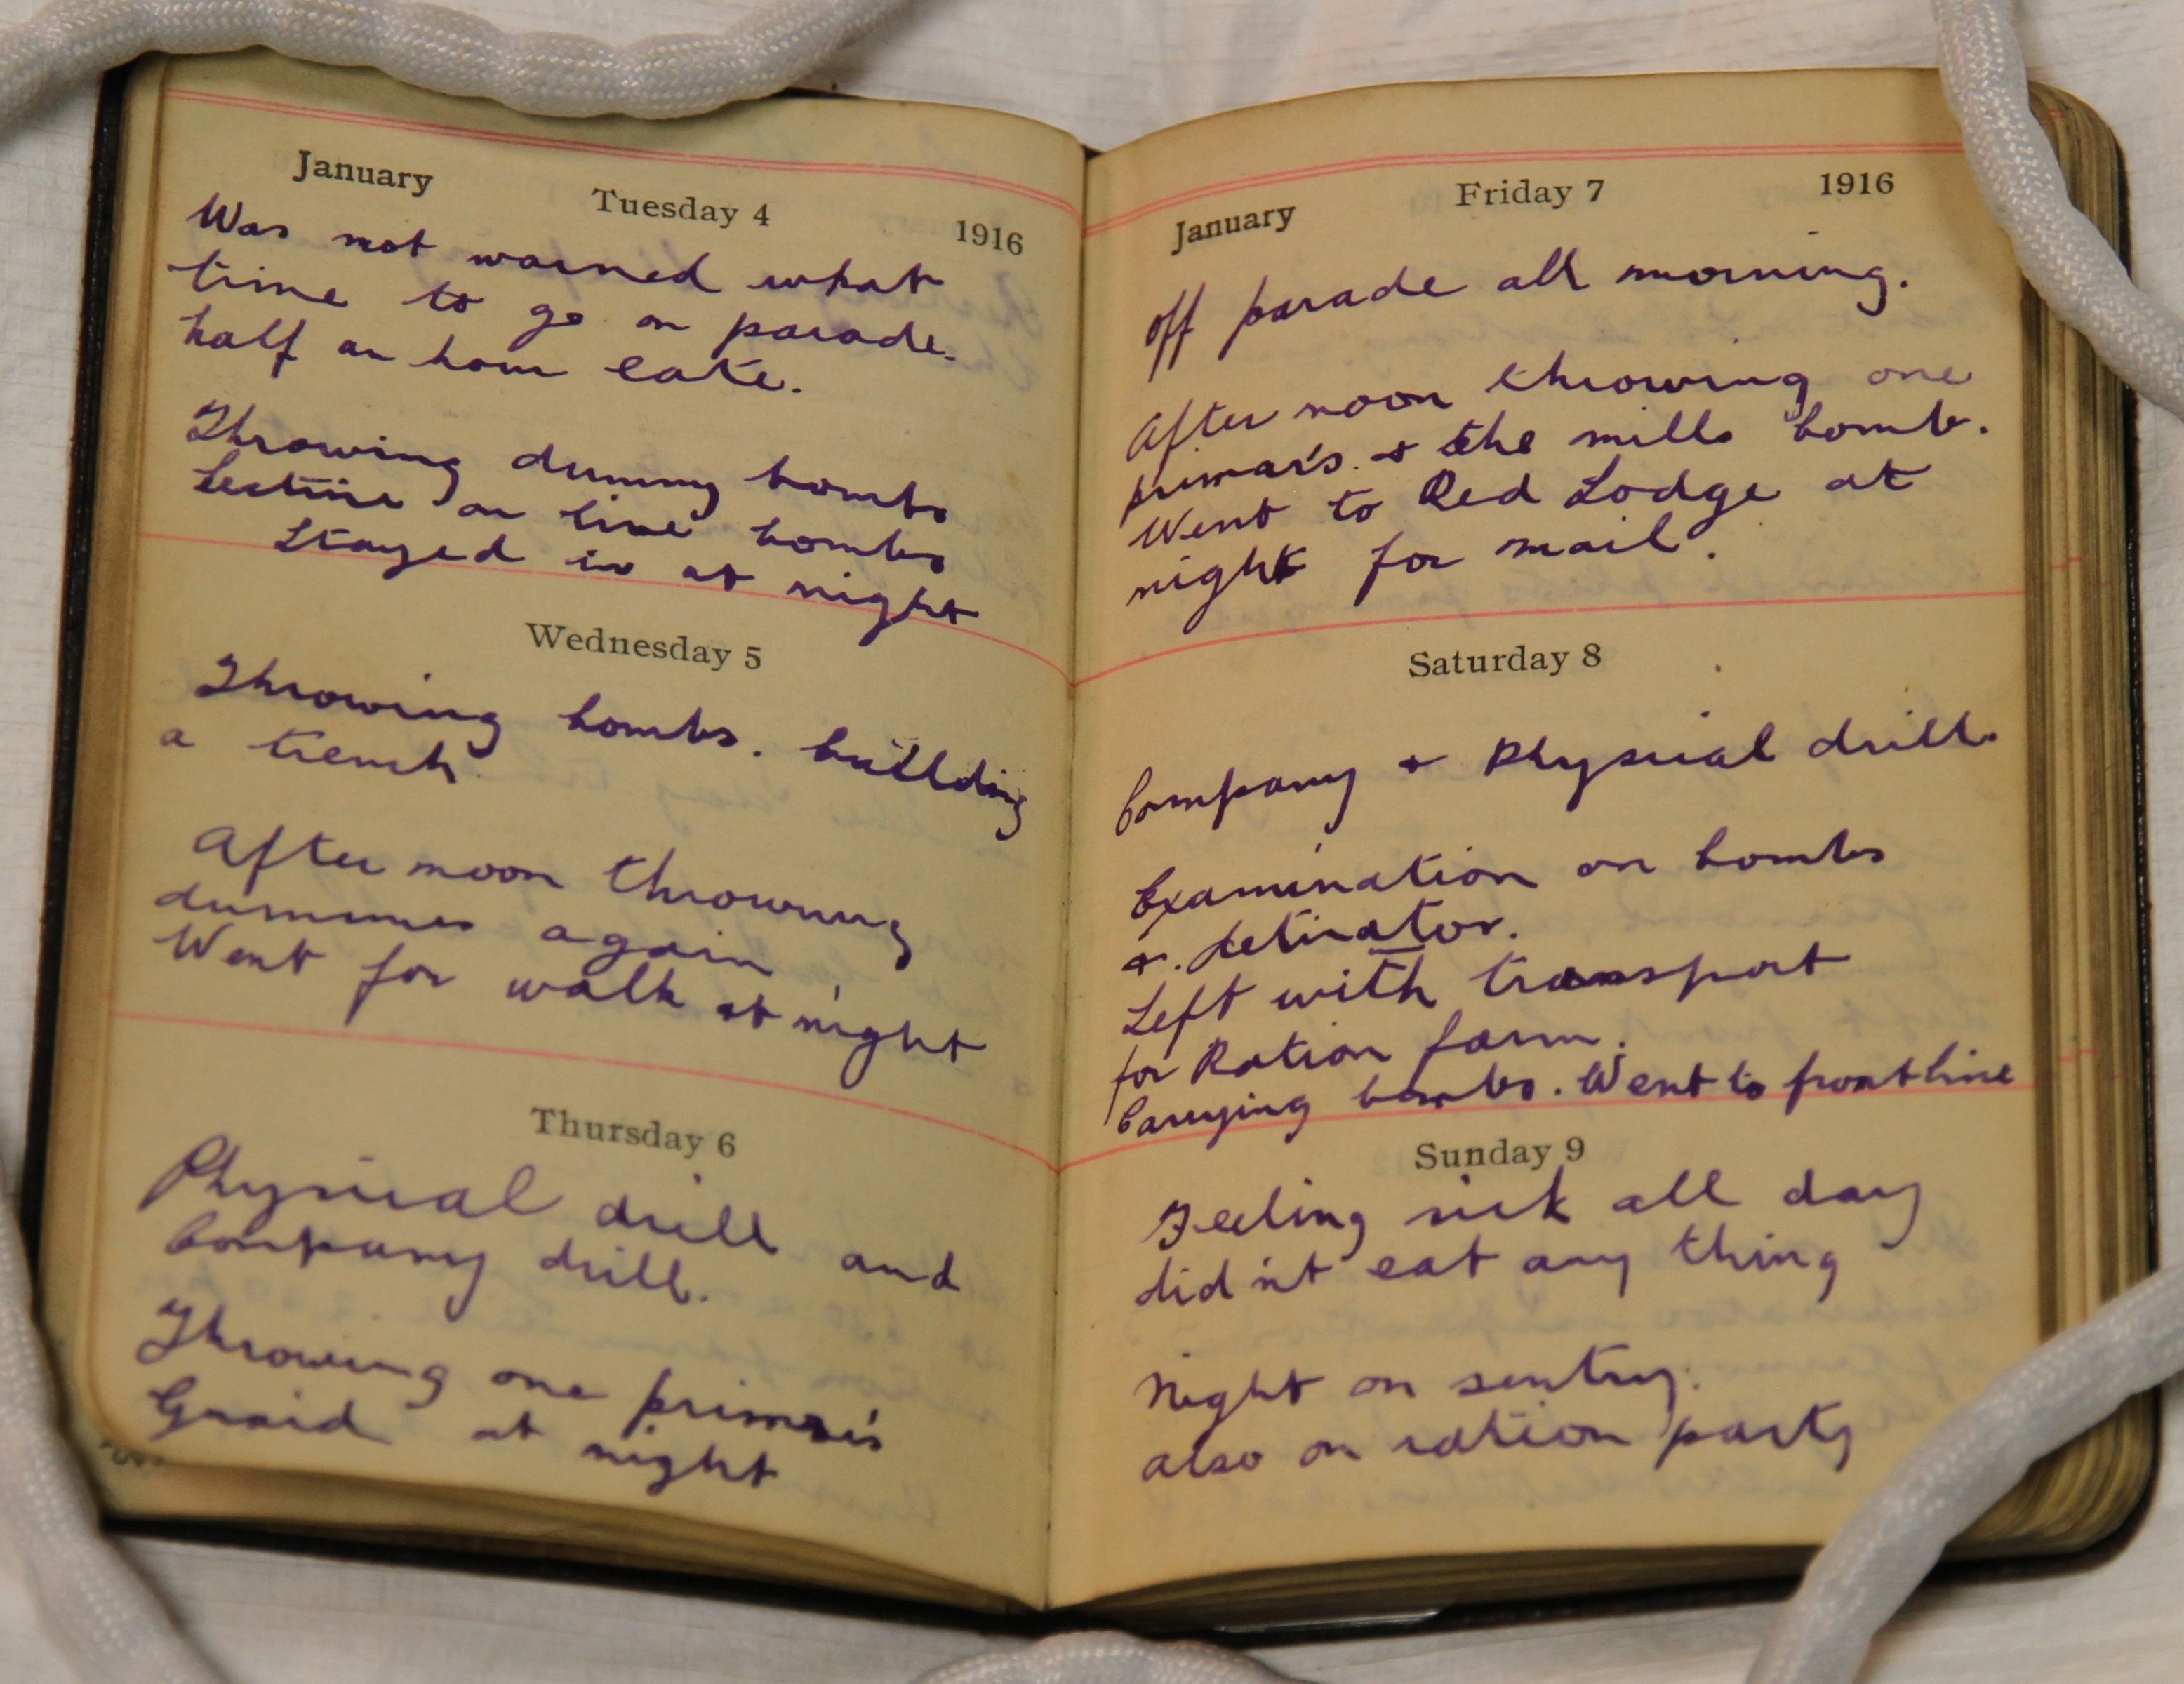 January
Tuesday 4
1916
Was not warned what
time to go on parade.
half an hour late.
Throwing dummy bombs
Lecture on live bombs
Stayed in at night
Wednesday 5
Throwing bombs. building
a trench
After noon throwing
dummies again
Went for walk at night
Thursday 6
Physical drill and
Company drill.
Throwing one primaris
Guard at night
January
Friday 7
1916
off parade all morning.
After noon throwing one
primaris. + the mills bomb.
Went to Red Lodge at
night for mail.
Saturday 8
Company + Physical drill.
Examination on bombs
+. detinator.
Left with transport
for Ration farm.
Carrying bombs. Went to front line
Sunday 9
Feeling sick all day
did n't eat any thing
Night on sentry.
also on ration party